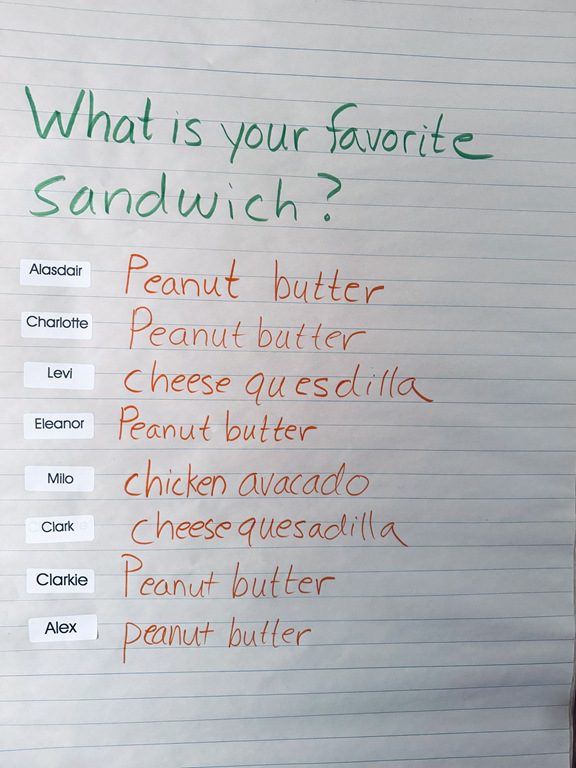 What is your favorite
sandwich?
Alasdair Peanut butter
Charlotte Peanut butter
Levi cheese quesdilla
Eleanor Peanut butter
Milo chicken avacado
Clark cheese quesadilla
Clarkie Peanut butter
Alex peanut butter